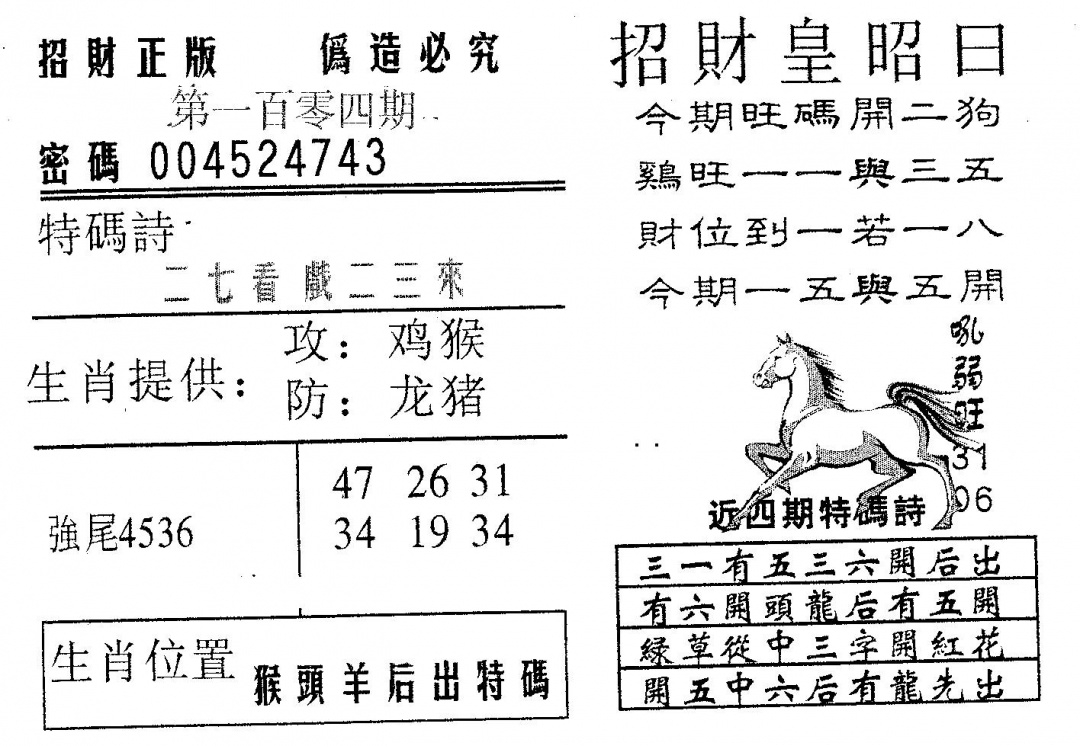 招財正版 偽造必究
第一百零四期
密碼 004524743
特碼詩
二七看戲二三來
生肖提供：
攻：鸡猴
防：龙猪
強尾4536
47 26 31
34 19 34
生肖位置
猴頭羊后出特碼
招財皇昭曰
今期旺碼開二狗
鷄旺一一與三五
財位到一若一八
今期一五與五開
吼弱旺
31
06
近四期特碼詩
三一有五三六開后出
有六開頭龍后有五開
緑草從中三字開紅花
開五中六后有龍先出